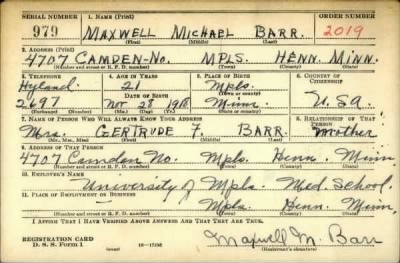 SERIAL NUMBER 1. NAME (Print) ORDER NUMBER
979 MAXWELL MICHAEL BARR. 2019
(First) (Middle) (Last)
2. ADDRESS (Print)
4707 CAMDEN-NO. MPLS. HENN. MINN.
(Number and street or R. F. D. number) (Town) (County) (State)
3. TELEPHONE 4. AGE IN YEARS 5. PLACE OF BIRTH 6. COUNTRY OF CITIZENSHIP
Hyland 21 Mpls.
DATE OF BIRTH (Town or county)
2697 Nov 28 1918 Minn. U.S.A.
(Mo.) (Day) (Yr.) (State or country)
7. NAME OF PERSON WHO WILL ALWAYS KNOW YOUR ADDRESS 8. RELATIONSHIP OF THAT PERSON
Mrs. GERTRUDE F. BARR. Mother
(Mr., Mrs., Miss) (First) (Middle) (Last)
9. ADDRESS OF THAT PERSON
4707 Camden No. Mpls. Henn. Minn.
(Number and street or R. F. D. number) (Town) (County) (State)
10. EMPLOYER'S NAME
University of Mpls. Med School.
11. PLACE OF EMPLOYMENT OR BUSINESS
Mpls. Henn. Minn.
(Number and street or R. F. D. number) (Town) (County) (State)
I AFFIRM THAT I HAVE VERIFIED ABOVE ANSWERS AND THAT THEY ARE TRUE.
REGISTRATION CARD
D. S. S. Form 1 Maxwell M. Barr
(Registrant's signature)